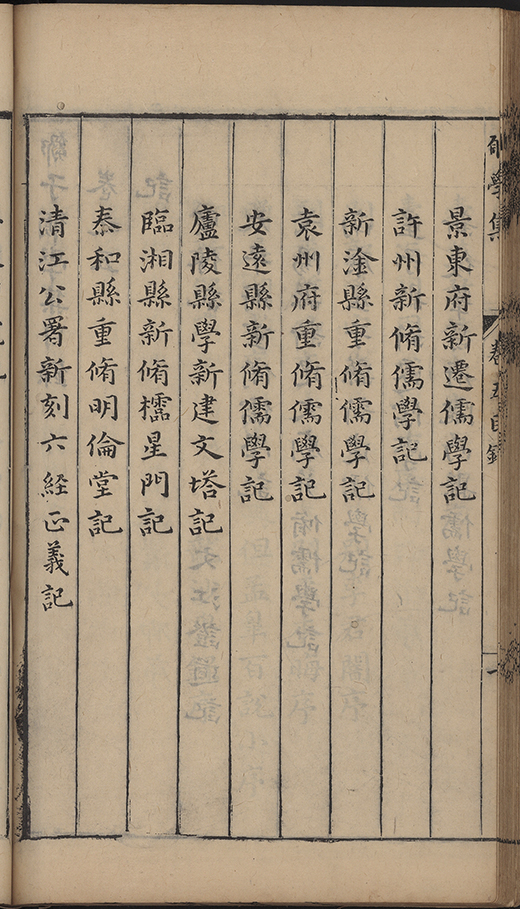 學集
卷五目錄
一
景東府新遷儒學記
許州新脩儒學記
新淦縣重脩儒學記
袁州府重脩儒學記
安遠縣新脩儒學記
廬陵縣學新建文塔記
臨湘縣新脩櫺星門記
泰和縣重脩明倫堂記
清江公署新刻六經正義記